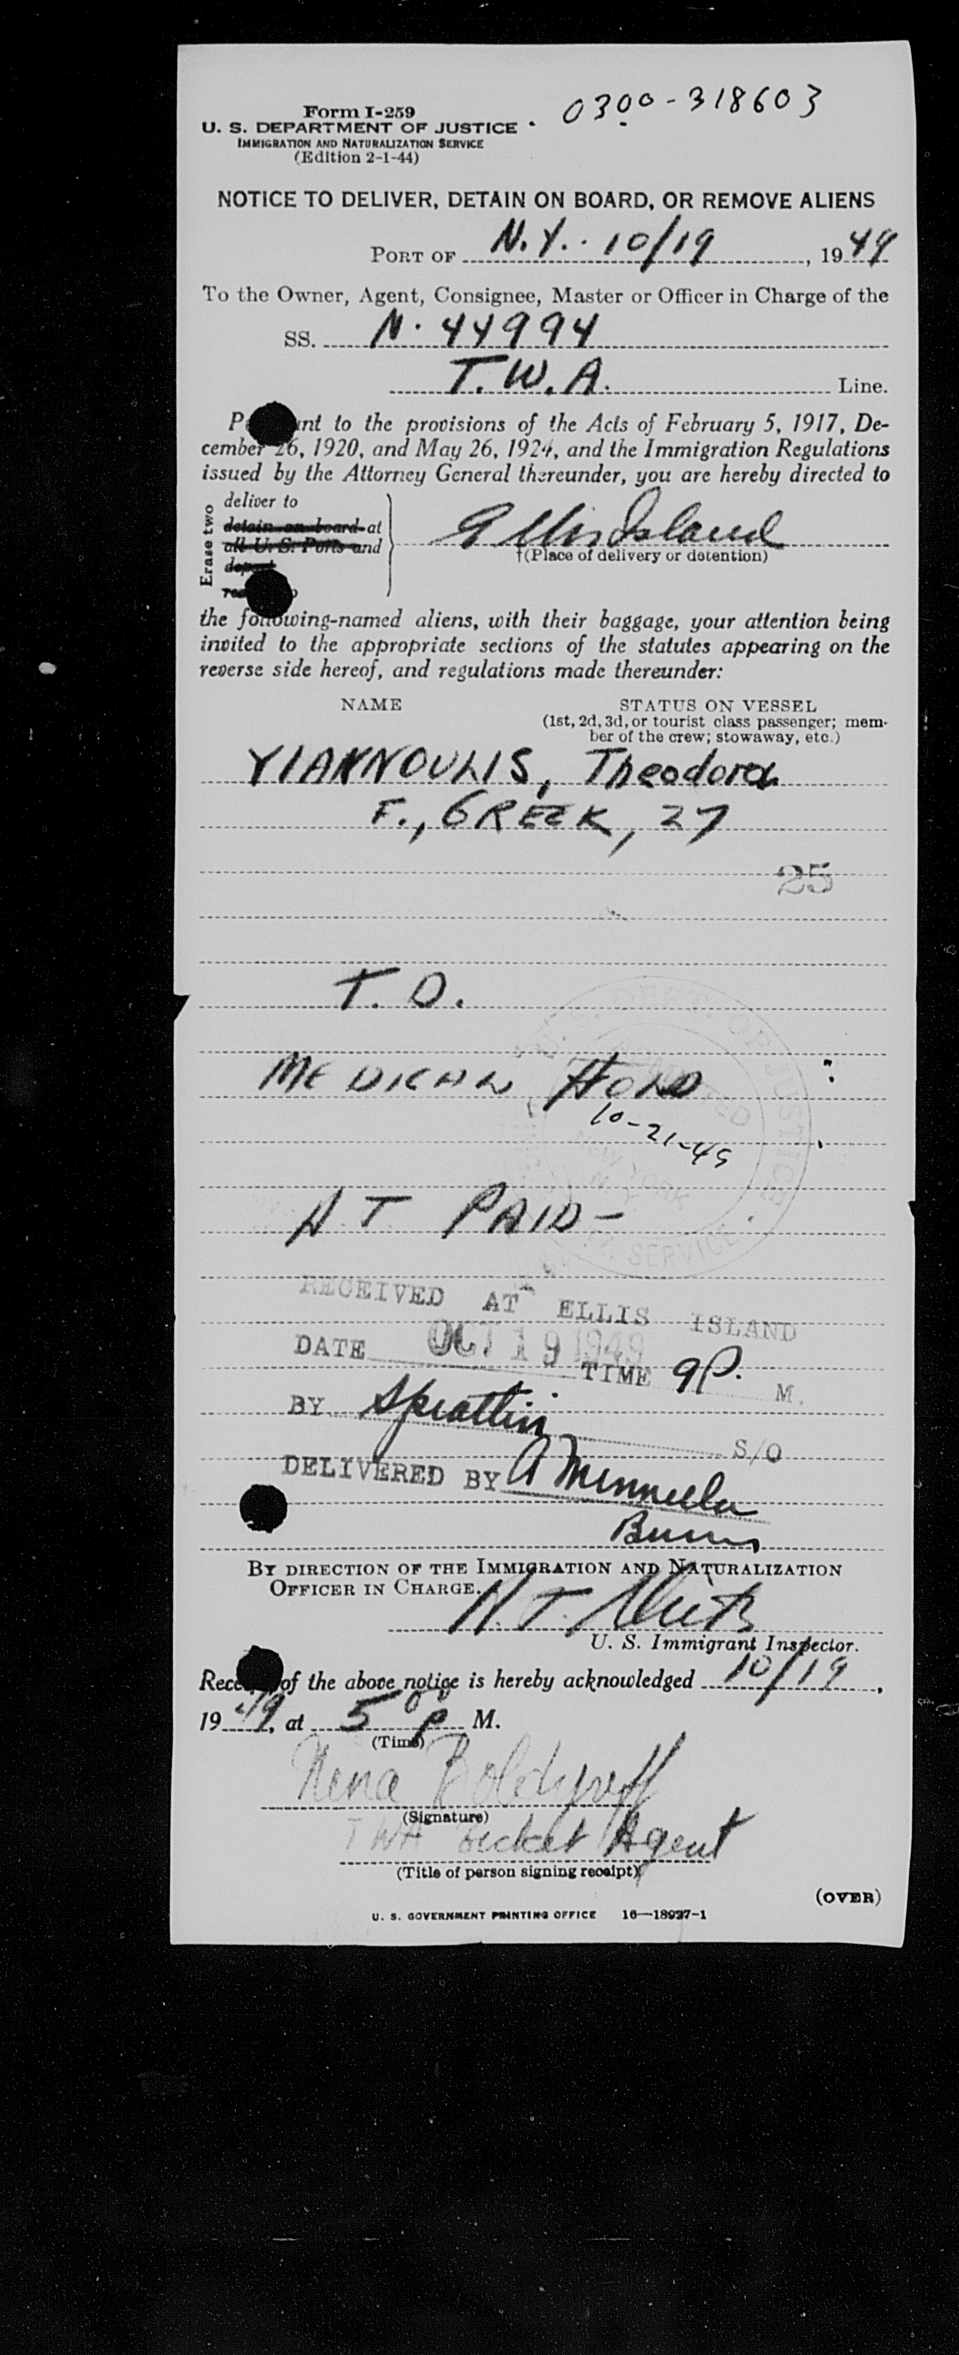 0300-318603
Form I-259
U. S. DEPARTMENT OF JUSTICE
IMMIGRATION AND NATURALIZATION SERVICE
(Edition 2-1-44)
NOTICE TO DELIVER, DETAIN ON BOARD, OR REMOVE ALIENS
PORT OF N.Y. 10/19, 1949
To the Owner, Agent, Consignee, Master or Officer in Charge of the
SS. N. 44994
T.W.A. Line.
P nt to the provisions of the Acts of February 5, 1917, De-
cember 26, 1920, and May 26, 1924, and the Immigration Regulations
issued by the Attorney General thereunder, you are hereby directed to
Erase two
deliver to
detain on board at
all U. S. Ports and
Ellis Island
†(Place of delivery or detention)
the following-named aliens, with their baggage, your attention being
invited to the appropriate sections of the statutes appearing on the
reverse side hereof, and regulations made thereunder:
NAME STATUS ON VESSEL
(1st, 2d, 3d, or tourist class passenger; mem-
ber of the crew; stowaway, etc.)
YIANNOULIS, Theodora
F., GREEK, 27
25
T. D.
MEDICAL HOLD
10-21-49
HT PAID -
RECEIVED AT ELLIS ISLAND
DATE OCT 19 1949 TIME 9 P. M.
BY S/O
DELIVERED BY
BY DIRECTION OF THE IMMIGRATION AND NATURALIZATION
OFFICER IN CHARGE.
U. S. Immigrant Inspector.
of the above notice is hereby acknowledged 10/19,
1949, at 5 00 P M.
(Time)
Nena Boldyreff
(Signature)
TWA ticket Agent
(Title of person signing receipt)
(OVER)
U. S. GOVERNMENT PRINTING OFFICE 16—18927-1